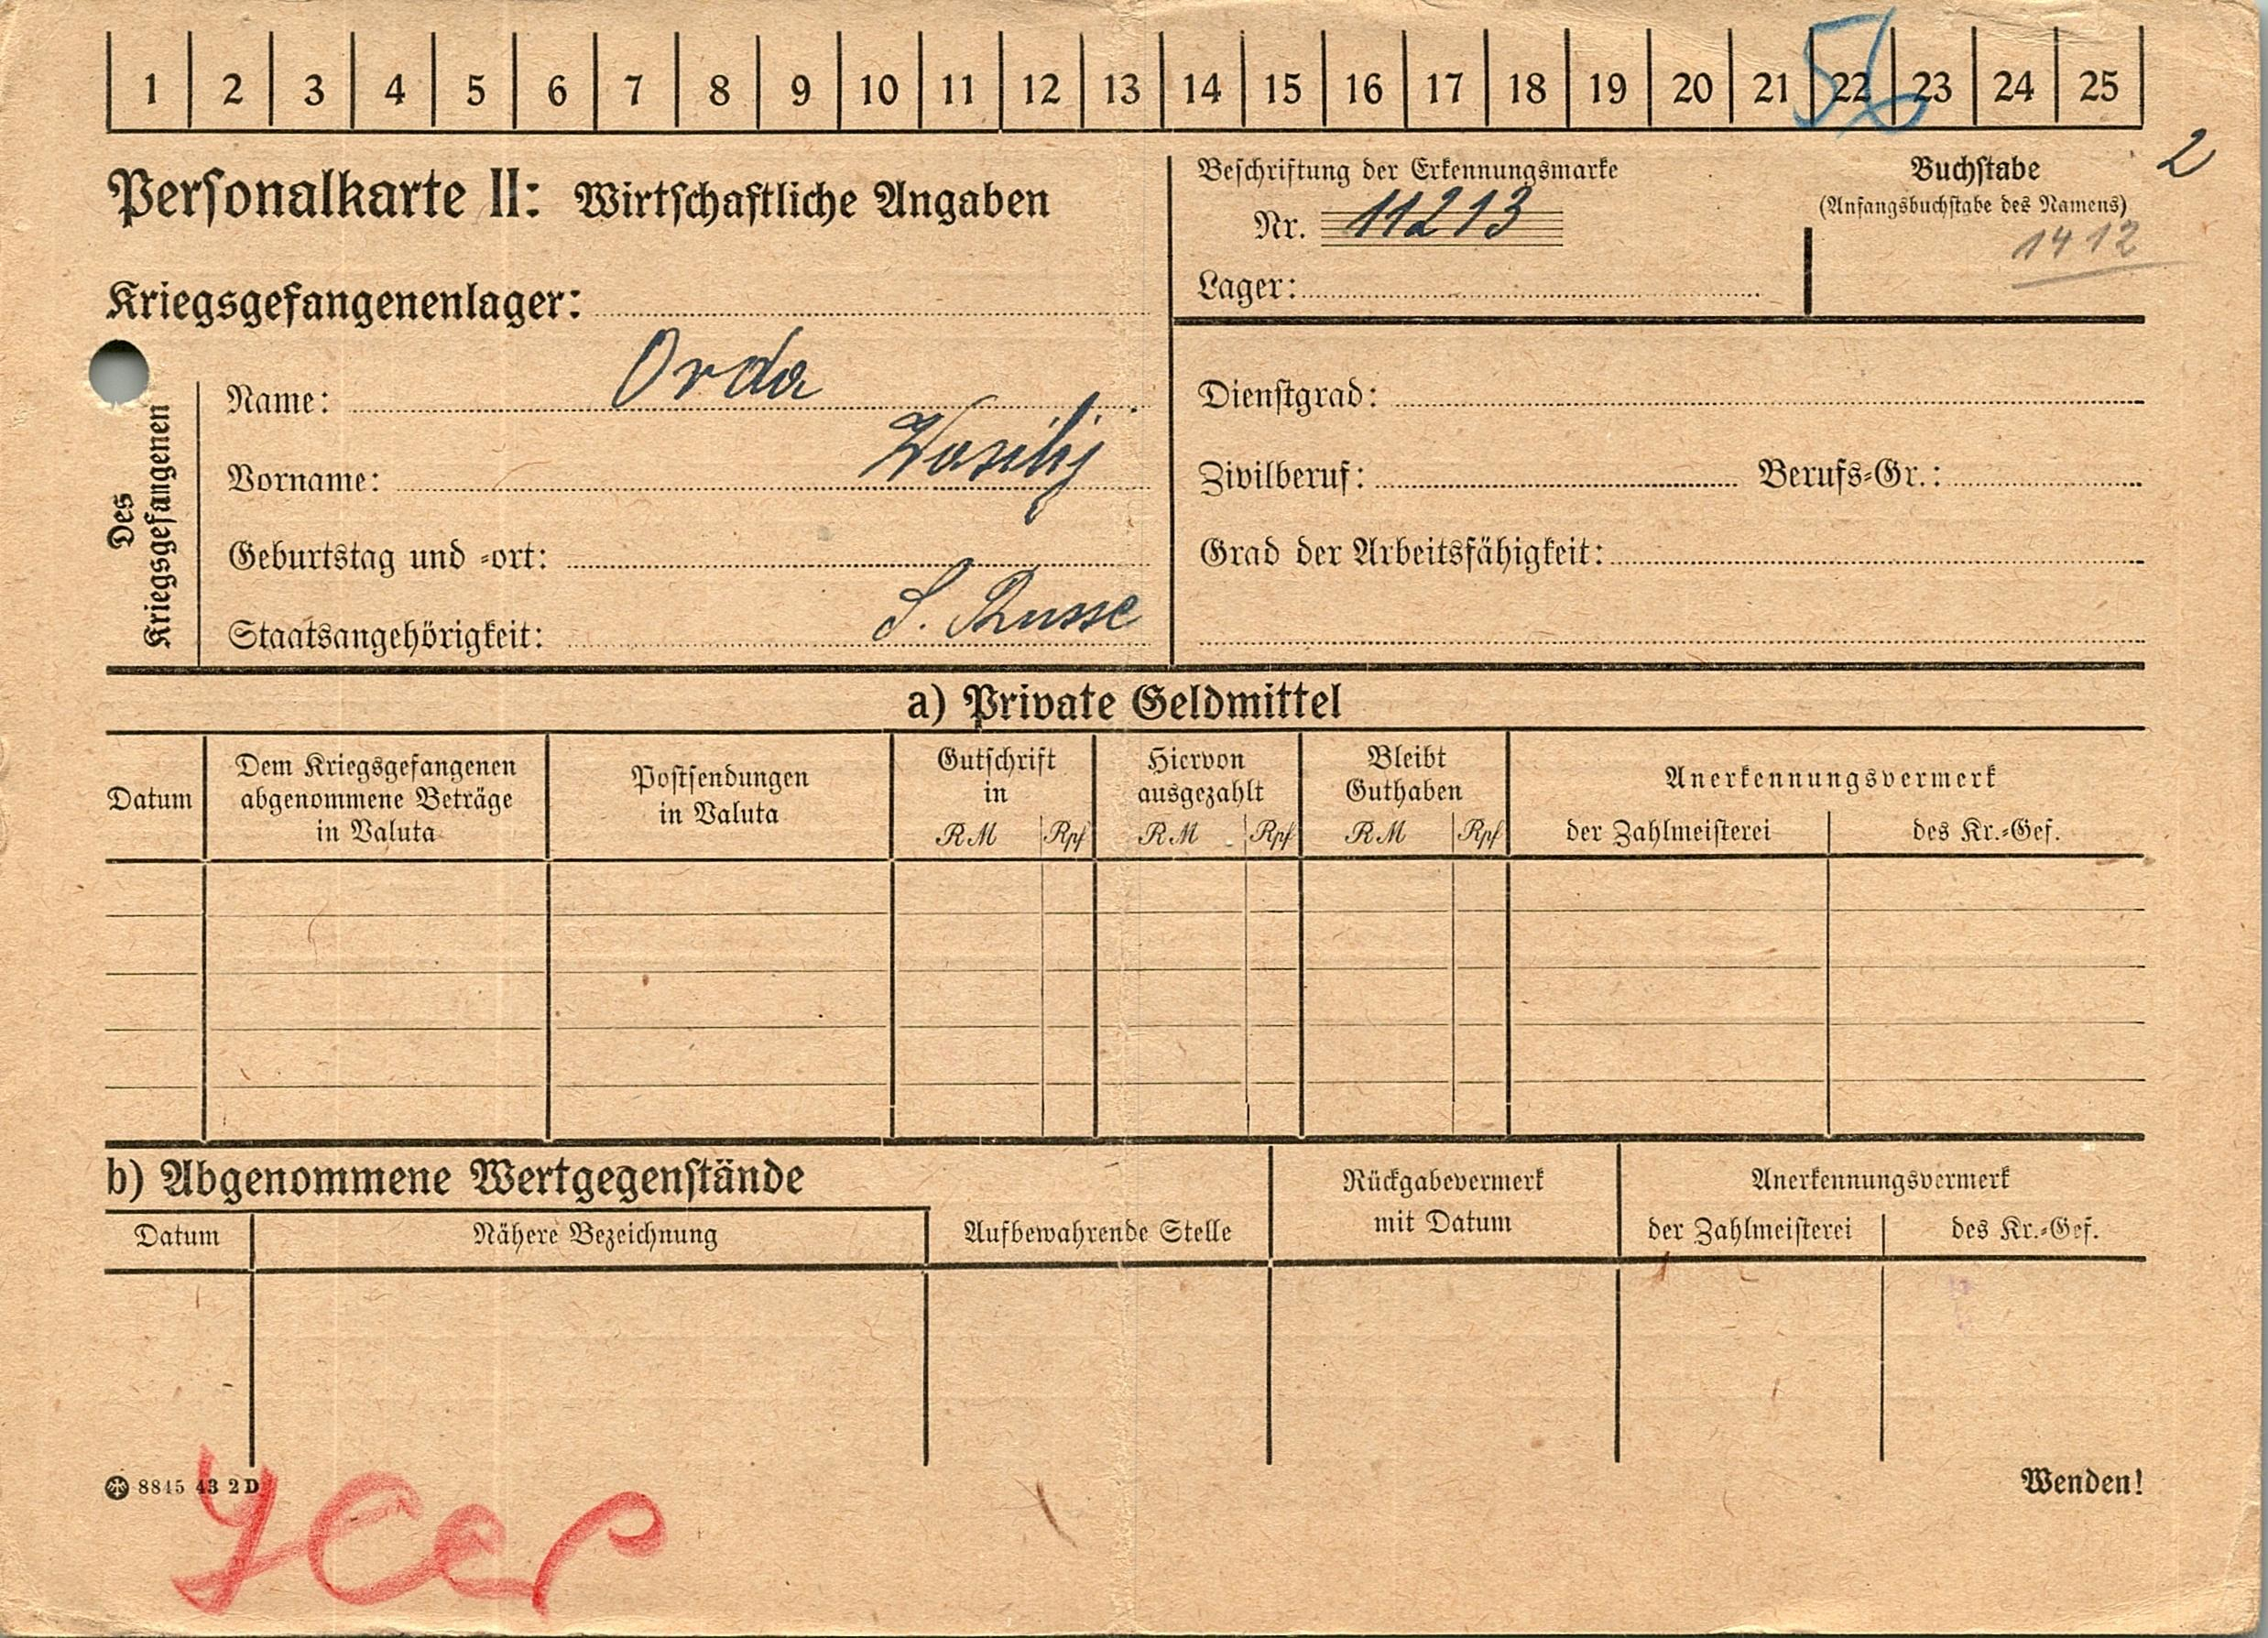 1 2 3 4 5 6 7 8 9 10 11 12 13 14 15 16 17 18 19 20 21 22 23 24 25
56
2
Personalkarte II: Wirtschaftliche Angaben
Beschriftung der Erkennungsmarke
Nr. 11213
Lager:
Buchstabe
(Anfangsbuchstabe des Namens)
1412
Kriegsgefangenenlager:
Des
Kriegsgefangenen
Name: Orda
Vorname: Wasilij
Geburtstag und -ort:
Staatsangehörigkeit: S. Russe
Dienstgrad:
Zivilberuf: Berufs-Gr.:
Grad der Arbeitsfähigkeit:
a) Private Geldmittel
Datum
Dem Kriegsgefangenen
abgenommene Beträge
in Valuta
Postsendungen
in Valuta
Gutschrift
in
RM Rpf
Hiervon
ausgezahlt
RM Rpf
Bleibt
Guthaben
RM Rpf
Anerkennungsvermerk
der Zahlmeisterei des Kr.-Gef.
b) Abgenommene Wertgegenstände
Datum Nähere Bezeichnung
Aufbewahrende Stelle
Rückgabevermerk
mit Datum
Anerkennungsvermerk
der Zahlmeisterei des Kr.-Gef.
8845 43 2D
Wenden!